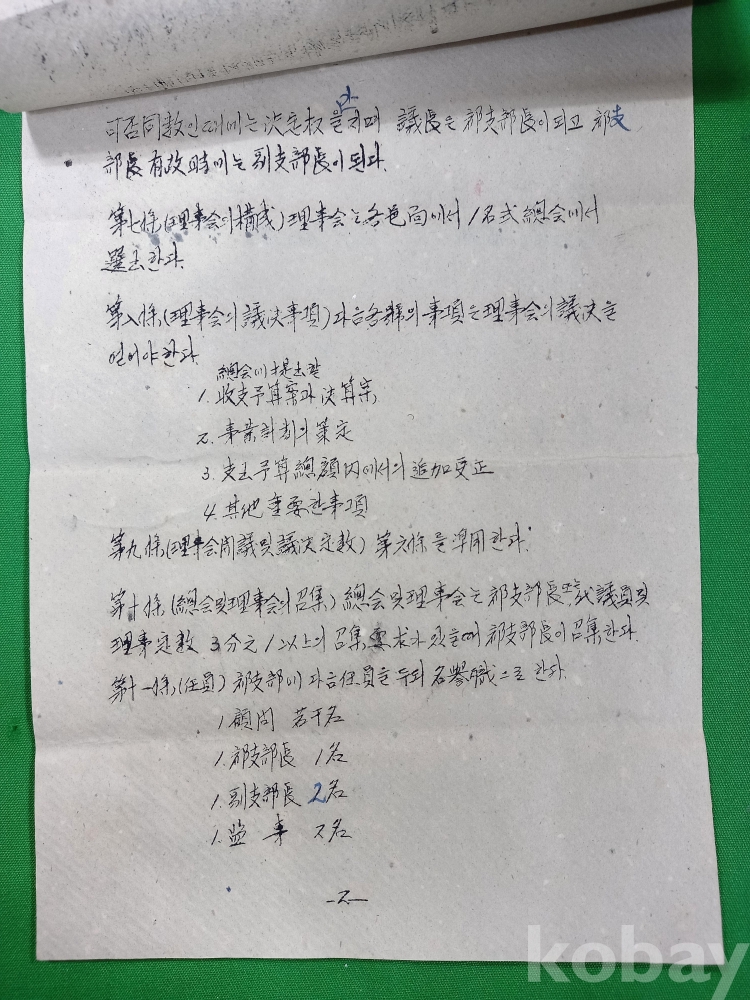 可否同数인때에는 決定权을 가지며 議長은 郡支部長이 되고 郡支
部長 有故時에는 副支部長이 된다.
第七條(理事会의 構成) 理事会는 各邑面에서 1名式 總会에서
選出한다.
第八條(理事会의 議決事項) 다음 各號의 事項은 理事会의 議決을
얻어야 한다.
總会에 提出할
1. 收支予算案과 決算案
2. 事業計劃의 策定
3. 支出予算總額内에서의 追加更正
4. 其他 重要한 事項
第九條(理事会開議 및 議決定数) 第六條을 準用한다.
第十條(總会 및 理事会의 召集) 總会 및 理事会는 郡支部長 또는 代議員 및
理事定数 3分之 1以上의 召集要求가 있을때 郡支部長이 召集한다.
第十一條(任員) 郡支部에 다음 任員을 두되 名譽職으로 한다.
1. 顧問 若干名
1. 郡支部長 1名
1. 副支部長 2名
1. 監事 2名
-2-
kobay